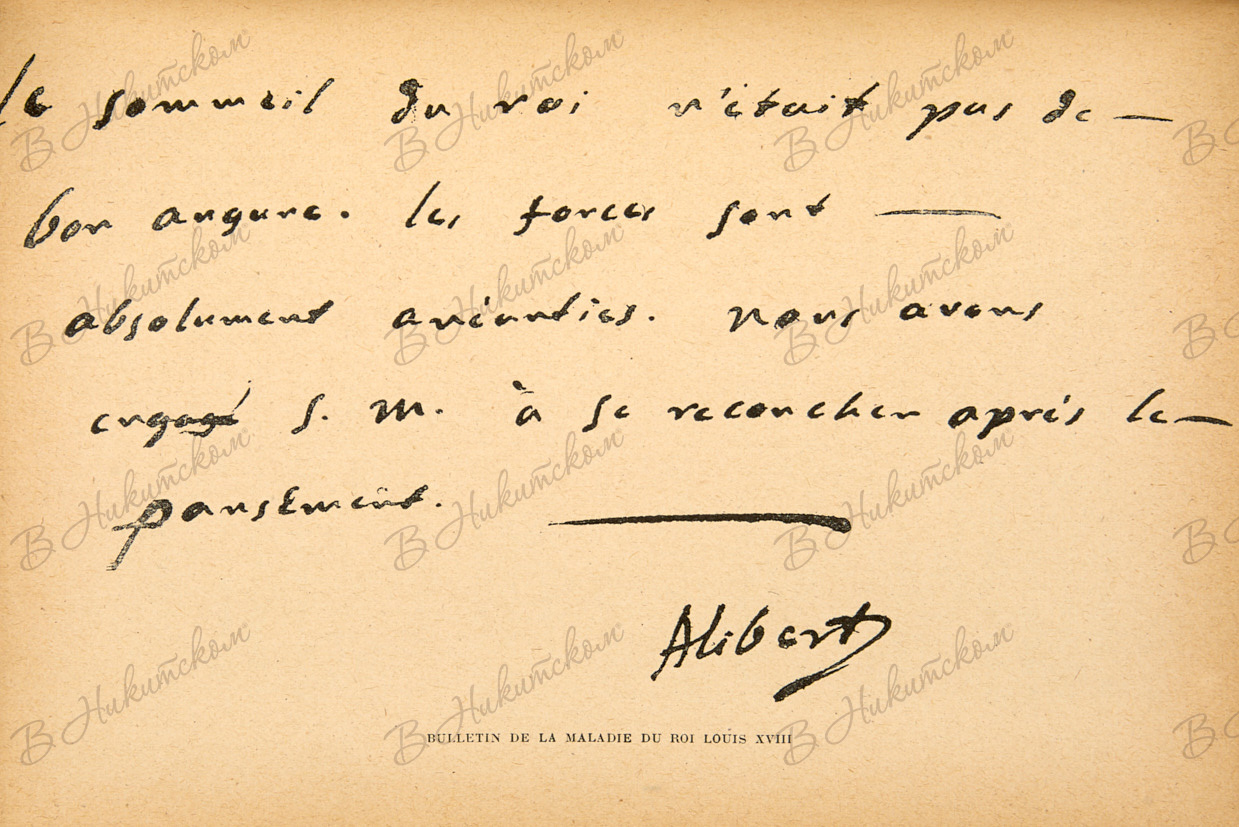 le sommeil du roi n'était pas de —
bon augure. les forces sont —
absolument anéanties. nous avons
engagé S. M. à se recoucher après le —
pansement. —
Alibert
BULLETIN DE LA MALADIE DU ROI LOUIS XVIII
В Никитском